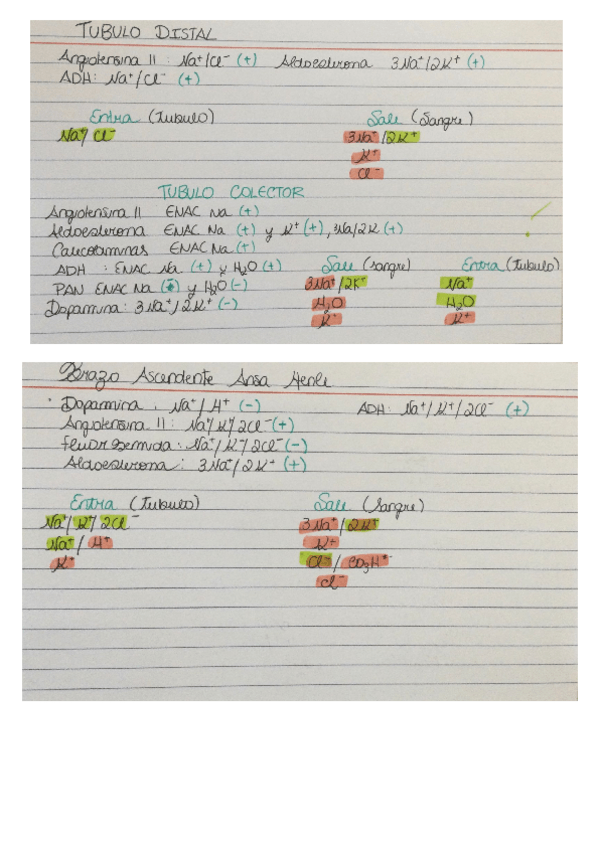 TUBULO DISTAL
Angiotensina II : Na⁺/Cl⁻ (+) Aldosterona 3Na⁺/2K⁺ (+)
ADH: Na⁺/Cl⁻ (+)
Entra (Tubulo) Sale (Sangre)
Na⁺/Cl⁻ 3Na⁺/2K⁺
K⁺
Cl⁻
TUBULO COLECTOR
Angiotensina II ENAC Na (+)
Aldosterona ENAC Na (+) y K⁺ (+), 3Na/2K (+)
Catecolaminas ENAC Na (+)
ADH : ENAC Na (+) y H₂O (+) Sale (sangre) Entra (Tubulo)
PAN ENAC Na y H₂O (-) 3Na⁺/2K⁺ Na⁺
Dopamina: 3Na⁺/2K⁺ (-) H₂O H₂O
K⁺ K⁺
Brazo Ascendente Ansa Henle
Dopamina . Na⁺/H⁺ (-) ADH: Na⁺/K⁺/2Cl⁻ (+)
Angiotensina II: Na⁺/K⁺/2Cl⁻ (+)
furosemida: Na⁺/K⁺/2Cl⁻ (-)
Aldosterona: 3Na⁺/2K⁺ (+)
Entra (Tubulo) Sale (Sangre)
Na⁺/K⁺/2Cl⁻ 3Na⁺/2K⁺
Na⁺/H⁺ K⁺
K⁺ Cl⁻/CO₃H⁻
Cl⁻